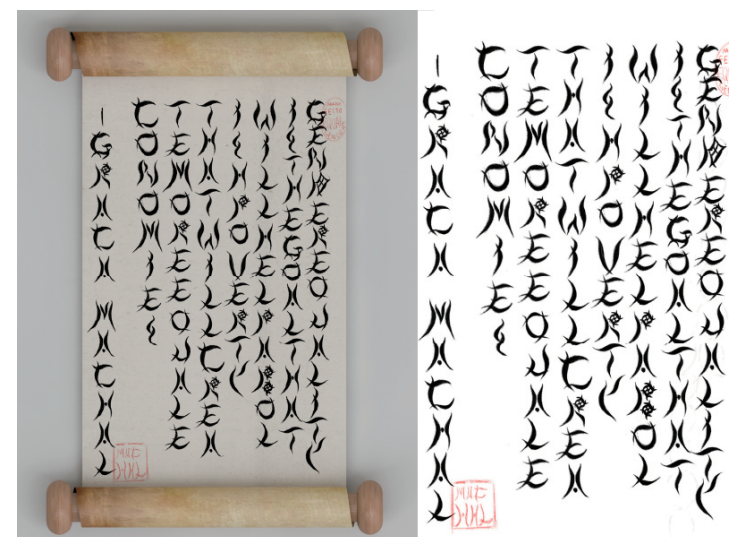 GENDEREQUALITY
ISTHEGOALTHAT
WILLHELPABOL
ISHPOVERTY
THATWILLCREA
TEMOREEQUALE
CONOMIES
-GRACA MACHAL
GENDEREQUALITY
ISTHEGOALTHAT
WILLHELPABOL
ISHPOVERTY
THATWILLCREA
TEMOREEQUALE
CONOMIES
-GRACA MACHAL